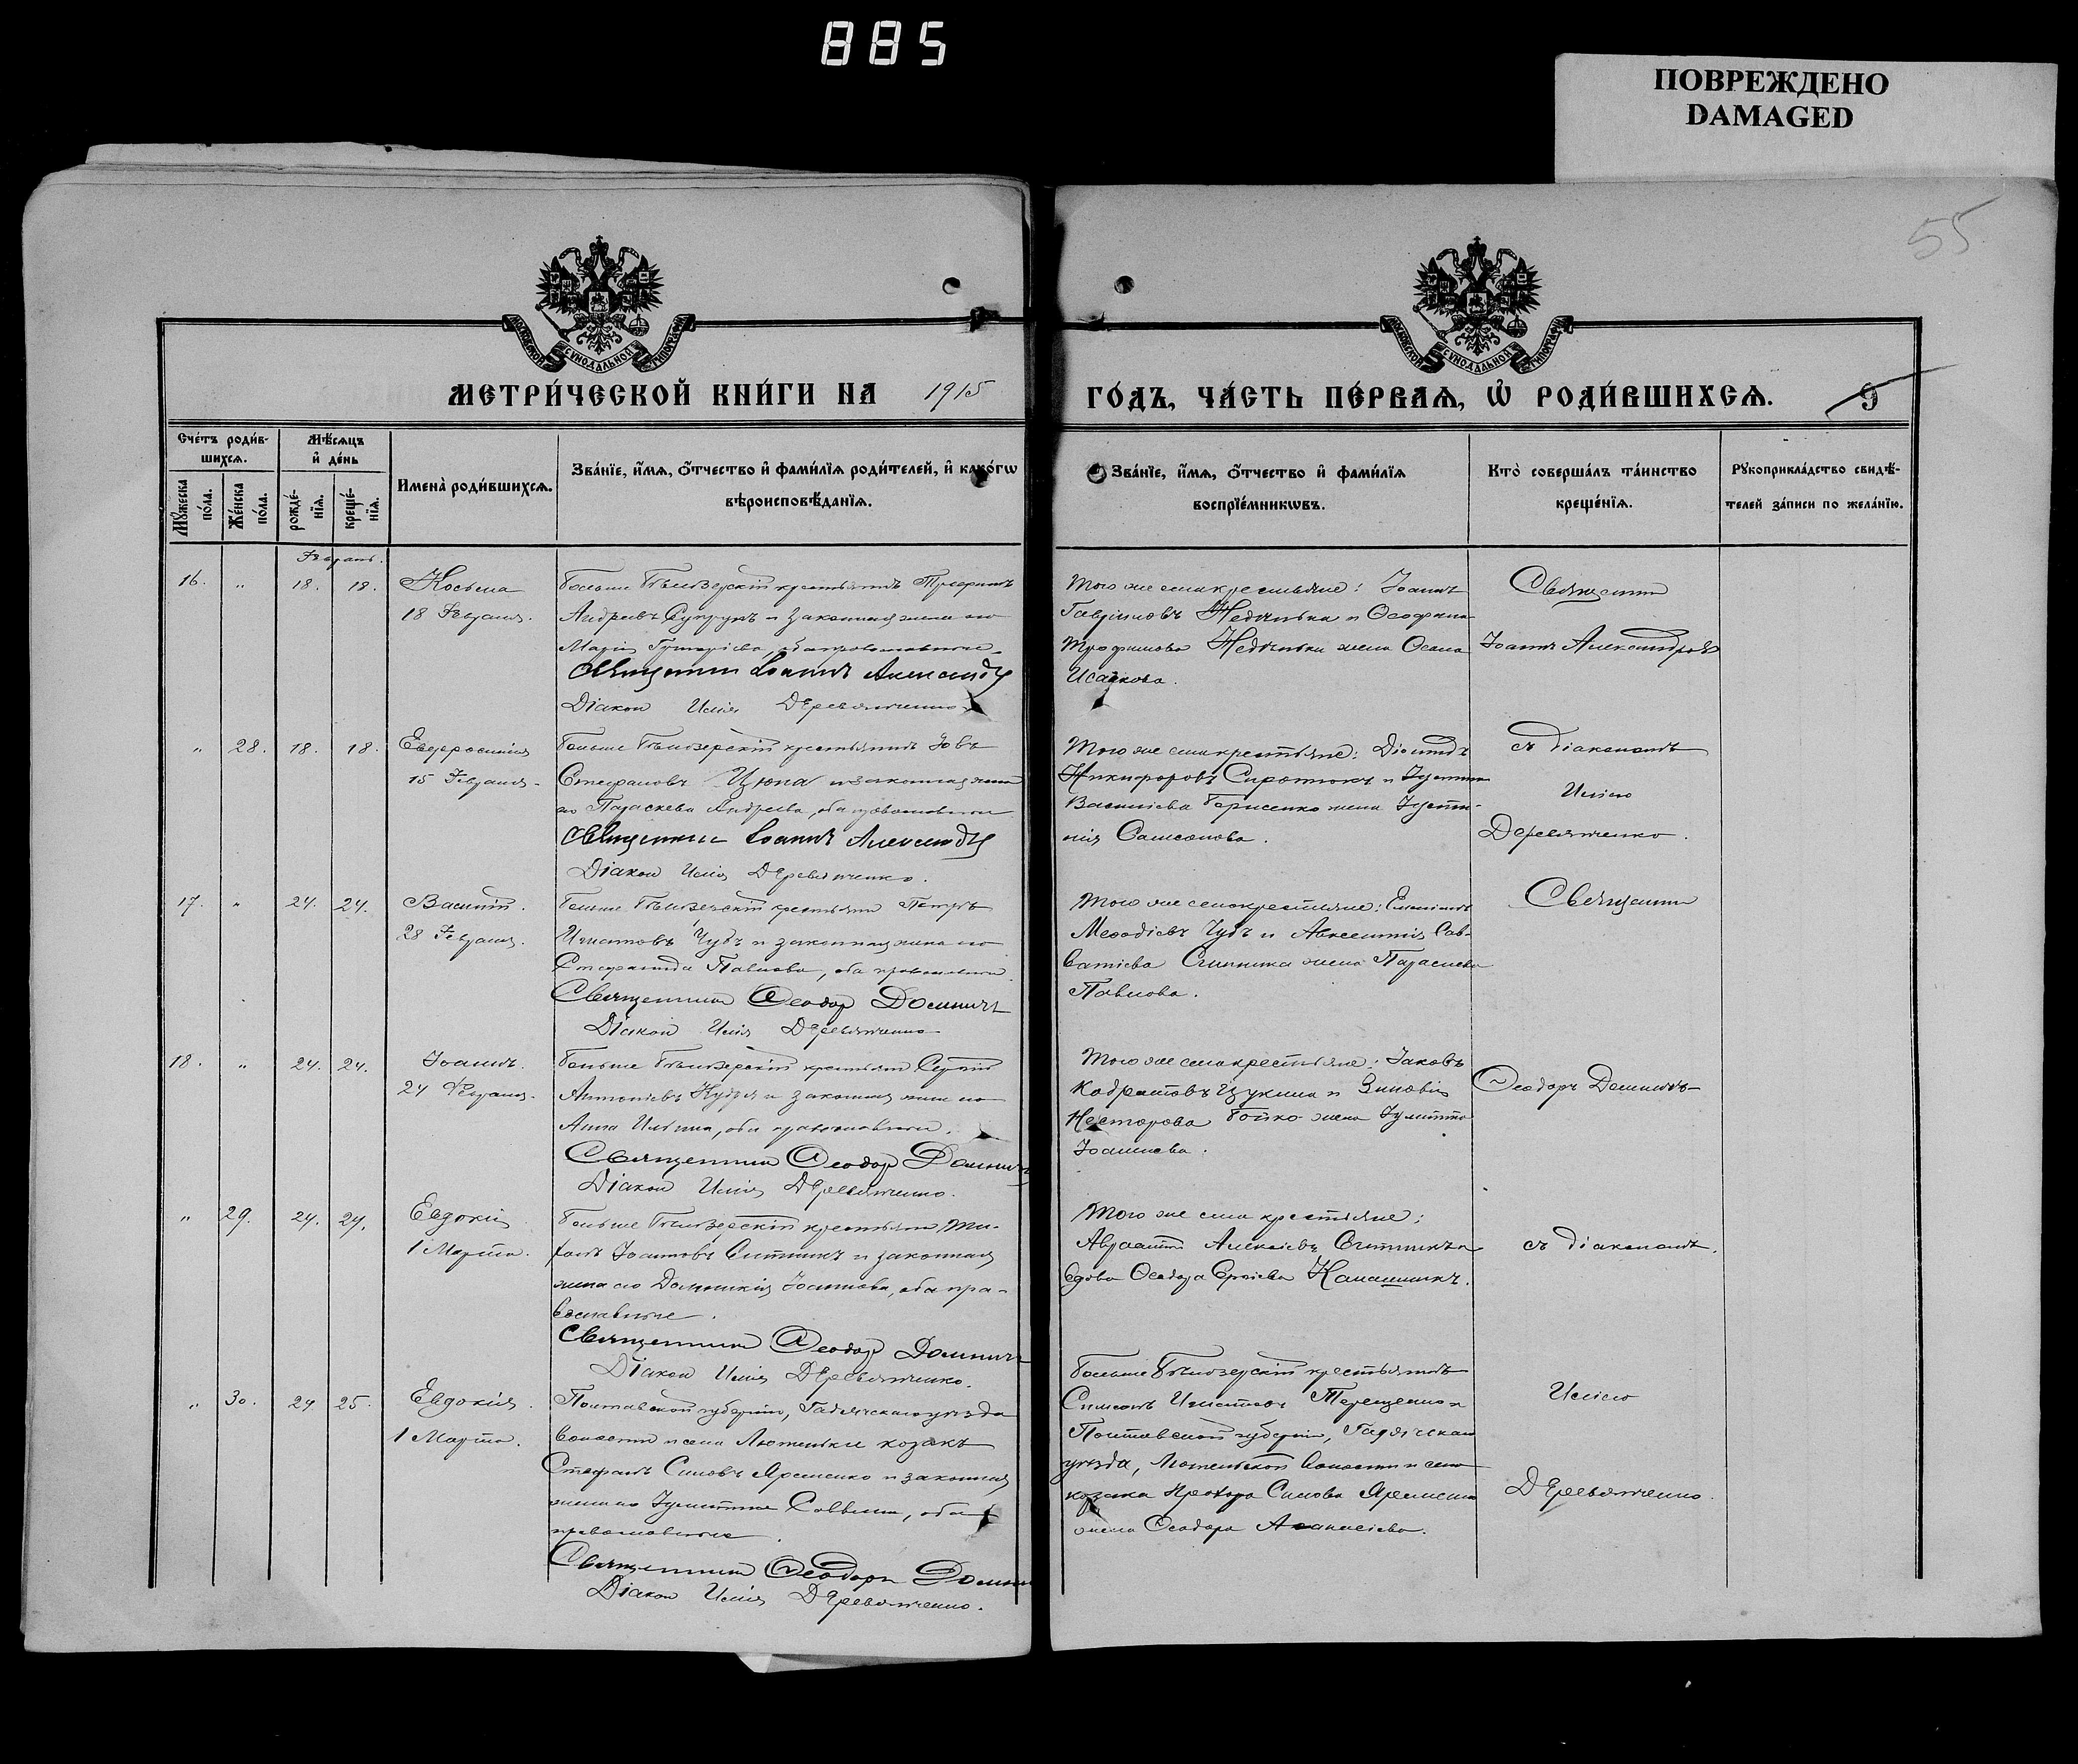 885
ПОВРЕЖДЕНО
DAMAGED
55
МОСКОВСКОЙ СѴНОДАЛЬНОЙ ТИПОГРАФІИ
МОСКОВСКОЙ СѴНОДАЛЬНОЙ ТИПОГРАФІИ
МЕТРИ́ЧЕСКОЙ КНИ́ГИ НА 1915
ГО́ДЪ, ЧА́СТЬ ПЕ́РВАѦ, Ѡ҆ РОДИ́ВШИХСѦ. 9
Сче́тъ роди́в-
шихсѧ.
Мѣ́сѧцъ
и҆ де́нь
Мꙋ́жеска
по́ла.
Же́нска
по́ла.
рожде́-
нїѧ.
креще́-
нїѧ.
Имена̀ роди́вшихсѧ.
Зва́нїе, и҆́мѧ, ѻ҆́тчество и҆ фами́лїѧ роди́телей, и҆ како́гѡ
вѣроисповѣ́данїѧ.
Зва́нїе, и҆́мѧ, ѻ҆́тчество и҆ фами́лїѧ
воспрїе́мникѡвъ.
Кто̀ соверша́лъ та́инство
креще́нїѧ.
Рꙋкоприкла́дство свидѣ́-
телей за́писи по жела́нїю.
Февраль.
16. " 18. 18. Косьма
18 Февраля.
Больше Бѣлозерскій крестьянинъ
Андреевъ Сукрунъ и законная жена его
Марія Григоріева, оба православные.
Священникъ Іоаннъ Александровъ
Діаконъ Илія Деревянченко
Того же села крестьяне: Іоаннъ
Гавріиловъ Недѣлька и Ѳеофила
Трофимова Недѣлька жена Осипа
Исаакова.
Священникъ
Іоаннъ Александровъ
" 28. 18. 18. Евфросинія
15 Февраля.
Больше Бѣлозерскій крестьянинъ Іовъ
Стефановъ Цюпа и законная жена
его Параскева Андреева, оба православные
Священникъ Іоаннъ Александровъ
Діаконъ Илія Деревянченко.
Того же села крестьяне: Діомидъ
Никифоровъ Сиротюкъ и
Васильева Борисенко жена Іусти-
нія Самсонова.
съ діакономъ
Иліею
Деревянченко.
17. " 24. 24. Василій.
28 Февраля.
Больше Бѣлозерскій крестьянинъ Петръ
Игнатовъ Чубъ и законная жена его
Стефанида Павлова, оба православные
Священникъ Ѳеодоръ Домничъ
Діаконъ Илія Деревянченко
Того же села крестьяне:
Меѳодіевъ Чубъ и Авксентія Сав-
ватіева жена Параскева
Павлова.
Священникъ
18. " 24. 24. Іоаннъ.
24 Февраля.
Больше Бѣлозерскій крестьянинъ Сергій
Антоніевъ Кудря и законная жена его
Анна Ильина, оба православные.
Священникъ Ѳеодоръ Домничъ
Діаконъ Илія Деревянченко.
Того же села крестьяне: Іаковъ
Кодратовъ и Зиновія
Несторова Бойко жена
Іоаннова.
Ѳеодоръ Домничъ
" 29. 24. 24. Евдокія
1 Марта.
Больше Бѣлозерскій крестьянинъ Ти-
хонъ Іоанновъ Ситникъ и законная
жена его Домникія Іоаннова, оба пра-
вославные.
Священникъ Ѳеодоръ Домничъ
Діаконъ Илія Деревянченко.
Того же села крестьяне:
Авраамъ Алексіевъ Ситникъ и
вдова Ѳеодора Сергіева
съ діакономъ.
" 30. 24 25. Евдокія.
1 Марта.
Полтавской губерніи, Гадячскаго уѣзда
волости и села Лютеньки козакъ
Стефанъ Симовъ Яременко и законная
жена его Іулитта Саввина, оба
православные.
Священникъ Ѳеодоръ Домничъ
Діаконъ Илія Деревянченко.
Больше Бѣлозерскій крестьянинъ
Симеонъ Игнатовъ Терещенко и
Полтавской губерніи, Гадячскаго
уѣзда, Лютенской волости и села
козака Прохора Симова Яременка
жена Ѳеодора Аѳанасіева.
Иліею
Деревянченко.